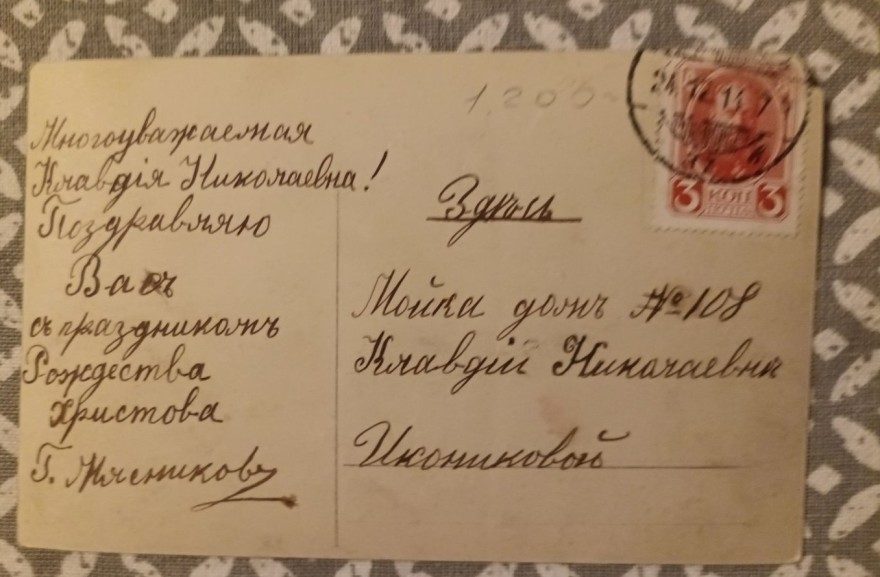 Многоуважаемая
Клавдія Николаевна!
Поздравляю
Васъ
съ праздникомъ
Рождества
Христова
Г. Мясниковъ
1,200-
24 12 13
3 КОП 3
Здѣсь
Мойка домъ № 108
Клавдіи Николаевнѣ
Икониковой